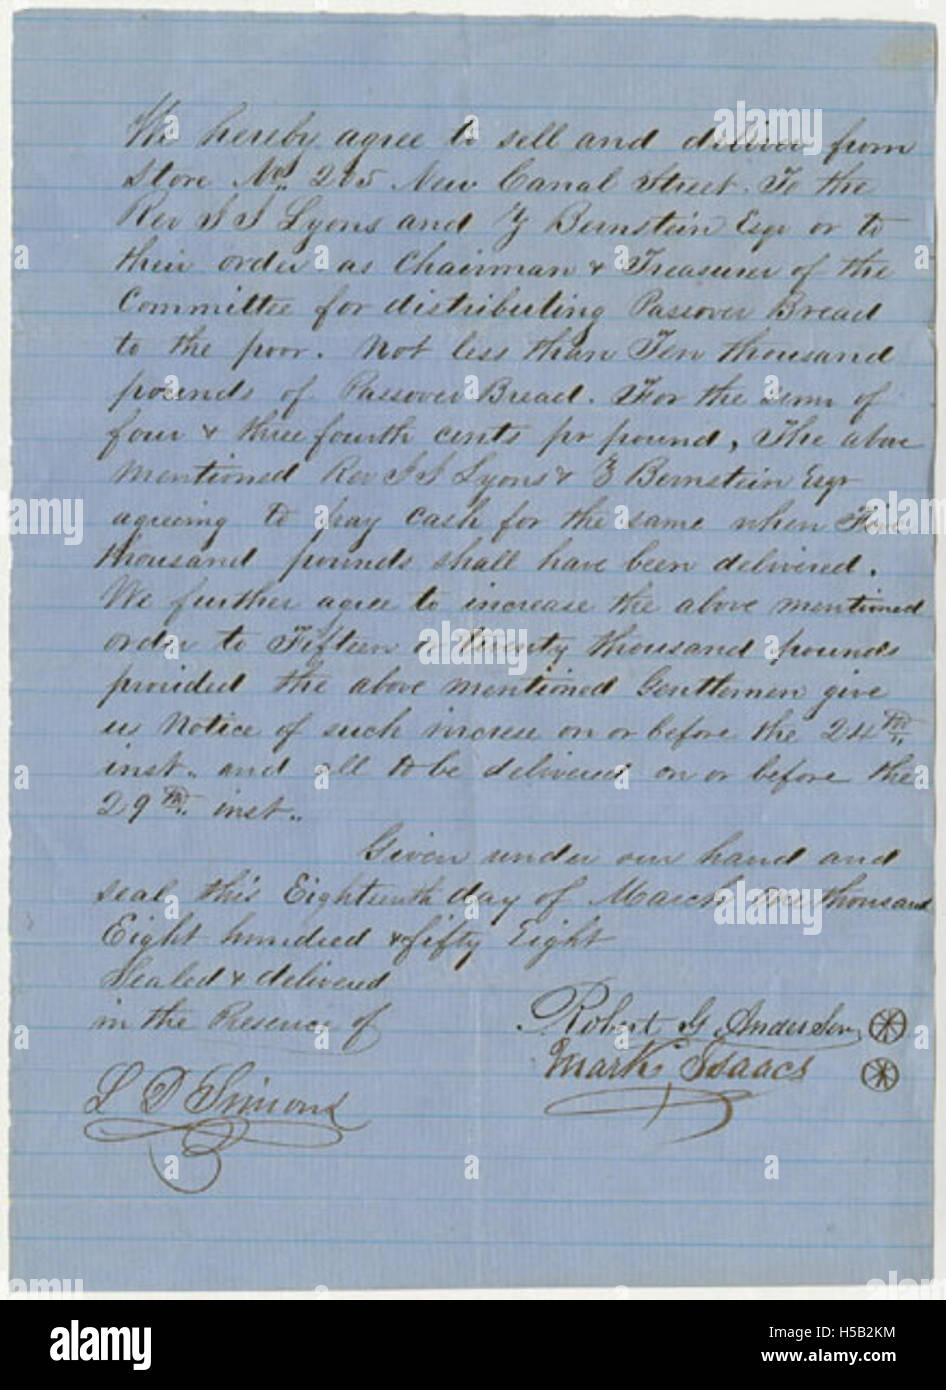 We hereby agree to sell and deliver from
Store No. 205 New Canal Street. To the
Rev J J Lyons and Z Bernstein Esqr or to
their order as Chairman & Treasurer of the
Committee for distributing Passover Bread
to the poor. Not less than Ten thousand
pounds of Passover Bread. For the sum of
four & three fourth cents pr pound, The above
mentioned Rev J J Lyons & Z Bernstein Esqr
agreeing to pay cash for the same when Five
thousand pounds shall have been delivered.
We further agree to increase the above mentioned
order to Fifteen or twenty thousand pounds
provided the above mentioned Gentlemen give
us Notice of such increse on or before the 24th
inst.. and all to be delivered on or before the
29th inst..
Given under our hand and
seal this Eighteenth day of March one thousand
Eight hundred & fifty Eight
Sealed & delivered
in the Presence of
Robert G. Anderson
Mark Isaacs
L D Simons
alamy
Image ID: H5B2KM
www.alamy.com